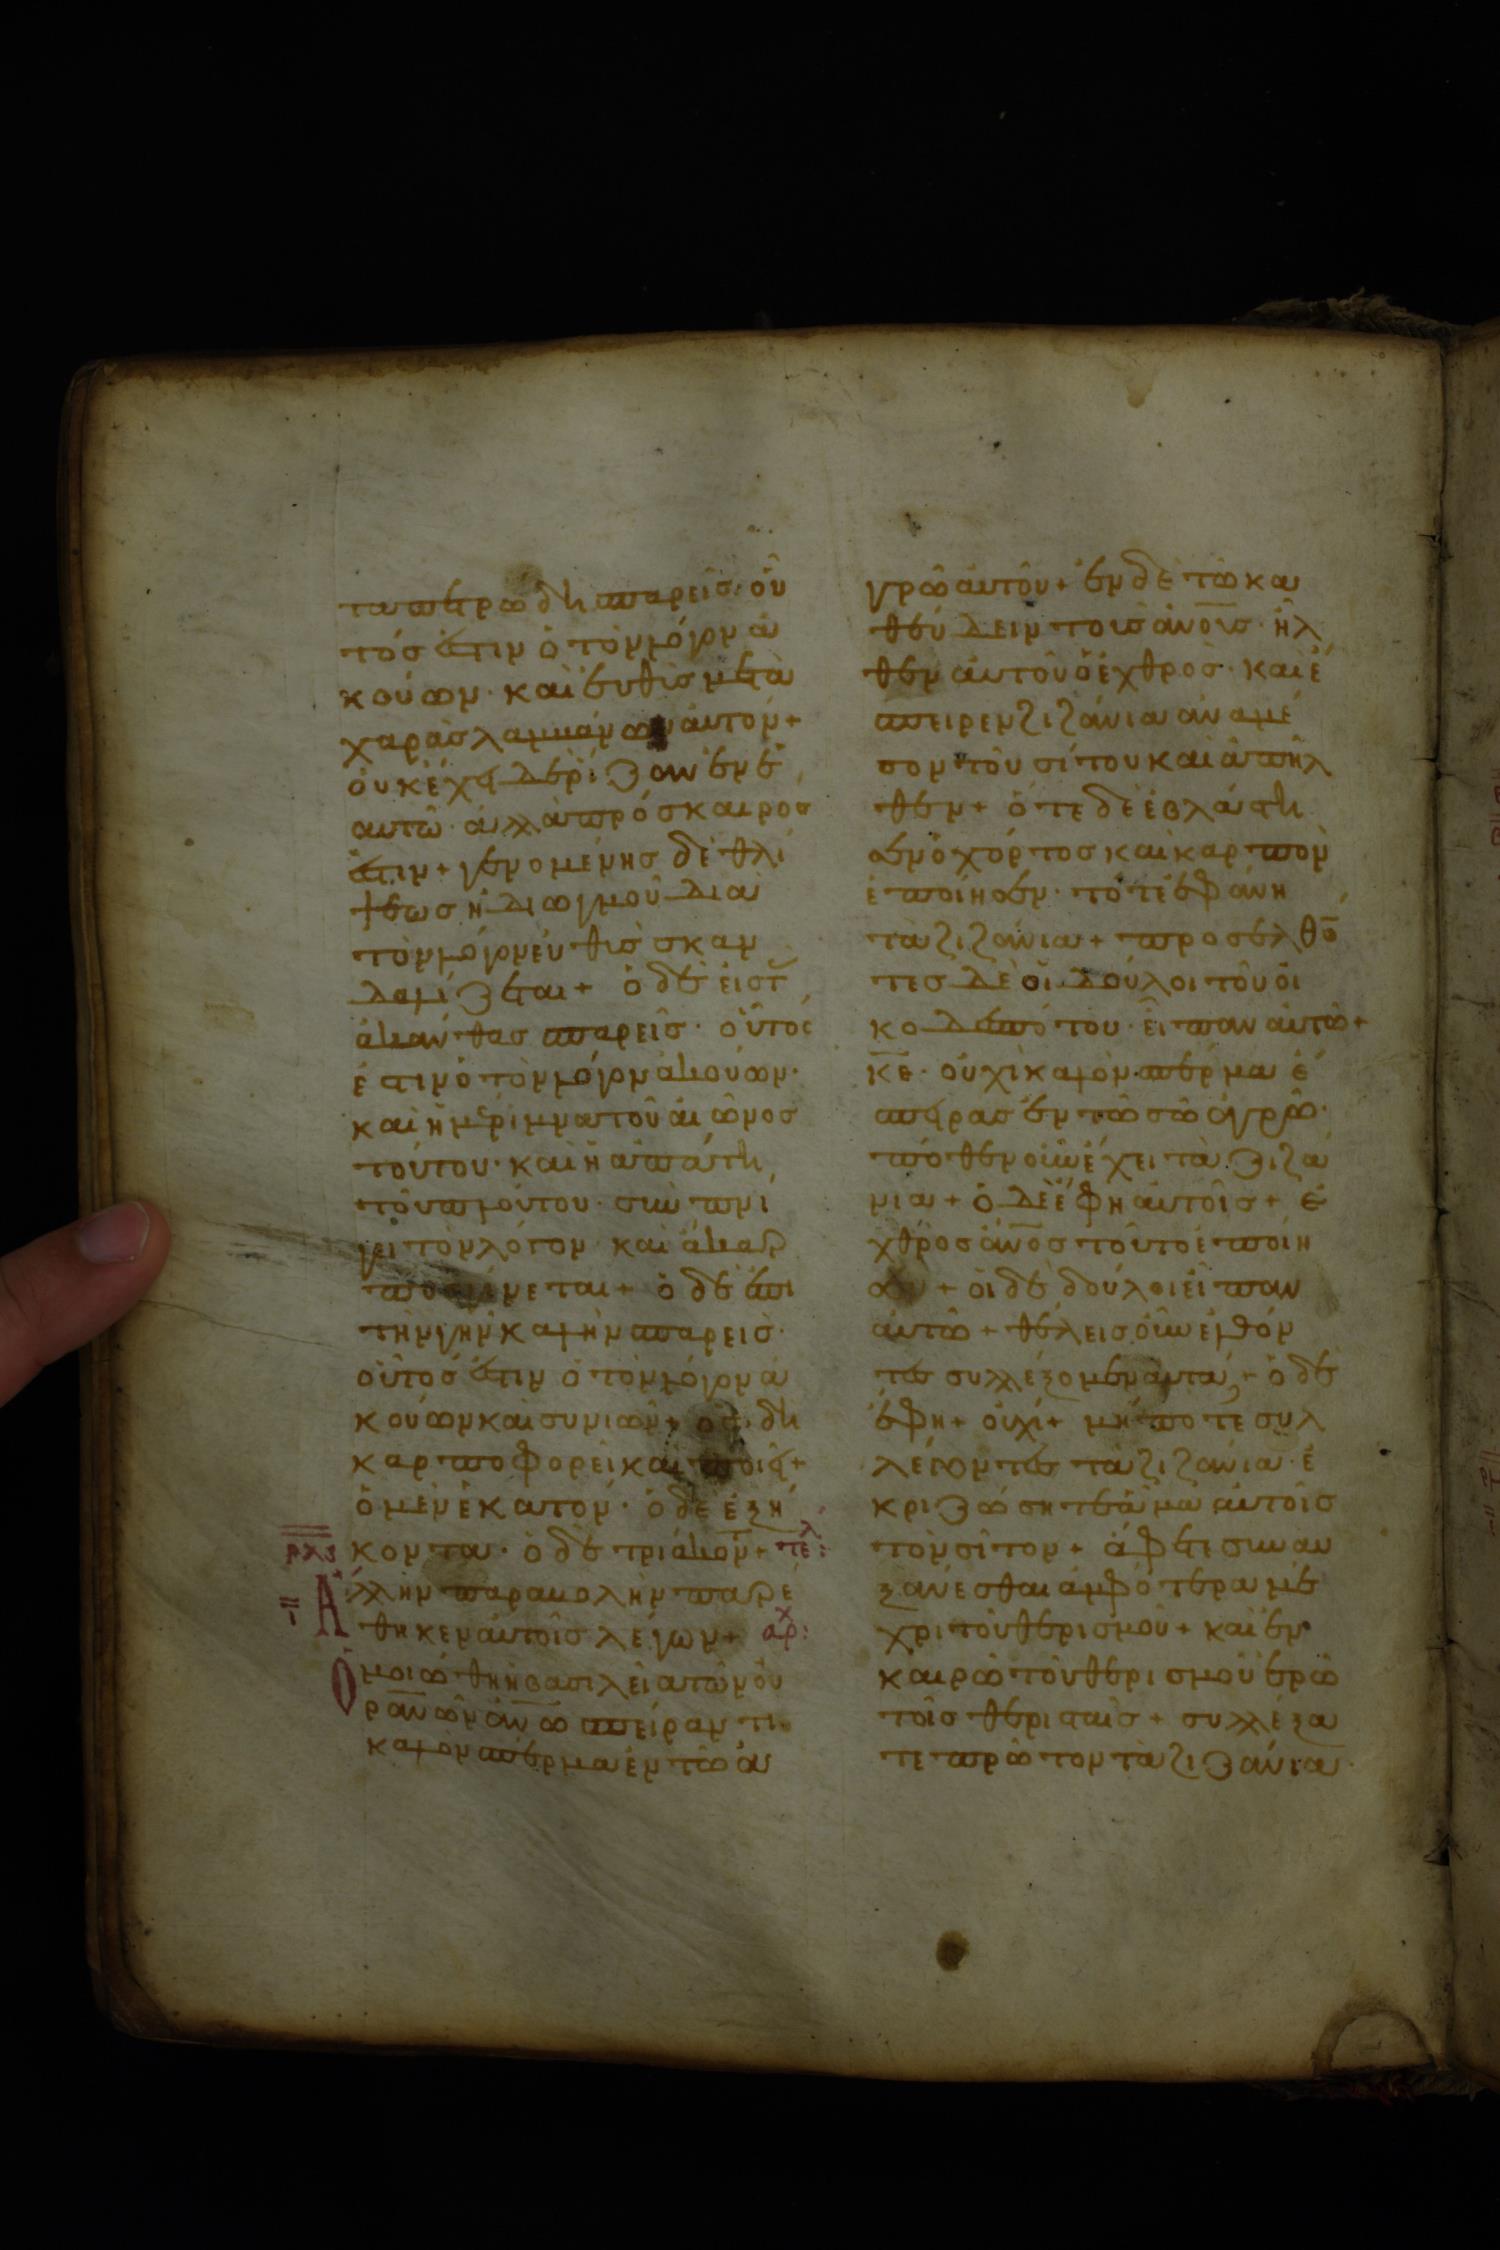 τα πετρώδη σπαρεὶς· οὗ
τός ἐστιν ὁ τὸν λόγον ἀ
κούων· καὶ εὐθὺς μετὰ
χαρᾶς λαμβάνων αὐτόν +
οὐκ ἔχει δὲ ῥίζαν ἐν ἑ
αυτῶ· ἀλλὰ πρόσκαιρος
ἐστιν + γενομένης δὲ θλί
ψεως ἢ διωγμοῦ διὰ
τὸν λόγον εὐθὺς σκαν
δαλίζεται + ὁ δὲ εἰς τ
ἀκάνθας σπαρεὶς· οὗτος
ἐστιν ὁ τὸν λόγον ἀκούων·
καὶ ἡ μέριμνα τοῦ αἰῶνος
τούτου· καὶ ἡ ἀπάτη
τοῦ πλούτου· συμπνί
γει τὸν λόγον καὶ ἄκαρ
πος γίνεται + ὁ δὲ ἐπι
τὴν γῆν καλὴν σπαρεὶς·
οὗτός ἐστιν ὁ τὸν λόγον ἀ
κούων καὶ συνιῶν + ὃς δὴ
καρποφορεῖ καὶ ποιεῖ +
ὁ μὲν ἑκατόν· ὁ δὲ ἑξή
ρλϛ κοντα· ὁ δὲ τριάκον + τελ:
Ἄλλην παραβολὴν παρέ
θηκεν αὐτοῖς λέγων + αρχ:
Ὁμοιώθη ἡ βασιλεία τῶν οὐ
ρανῶν ἀνω σπείραντι
καλὸν σπέρμα ἐν τῶ ἀ
γρῶ αὐτοῦ + ἐν δὲ τῶ κα
θεύδειν τοὺς ἀνους· ἦλ
θεν αὐτοῦ ὁ ἐχθρὸς· καὶ ἔ
σπειρεν ζιζάνια ἀναμέ
σον τοῦ σίτου καὶ ἀπῆλ
θεν + ὅτε δὲ ἐβλάστη
σεν ὁ χόρτος καὶ καρπὸν
ἐποίησεν· τότε ἐφάνη
τὰ ζιζάνια + προσελθο
τες δὲ οἱ δούλοι τοῦ οἰ
κοδεσπότου· εἶπαν αὐτῶ +
κε· οὐχὶ καλὸν σπέρμα ἔ
σπειρας ἐν τῶ σῶ ἀγρῶ·
πόθεν οὖν ἔχει τὰ ζιζά
νια + ὁ δὲ ἔφη αὐτοῖς + ἐ
χθρὸς ἀνος τοῦτο ἐποίη
σεν + οἱ δὲ δούλοι εἶπαν
αὐτῶ + θέλεις οὖν ἐλθόν
τες συλλέξομεν αὐτά + ὁ δὲ
ἔφη + οὐχί + μήποτε συλ
λέγοντες τὰ ζιζάνια· ἐ
κριζώσητε ἅμα αὐτοῖς
τὸν σῖτον + ἄφετε συναυ
ξάνεσθαι ἀμφότερα μέ
χρι τοῦ θερισμοῦ + καὶ ἐν
καιρῶ τοῦ θερισμοῦ ἐρῶ
τοῖς θερισταῖς + συλλέξα
τε πρῶτον τὰ ζιζάνια·